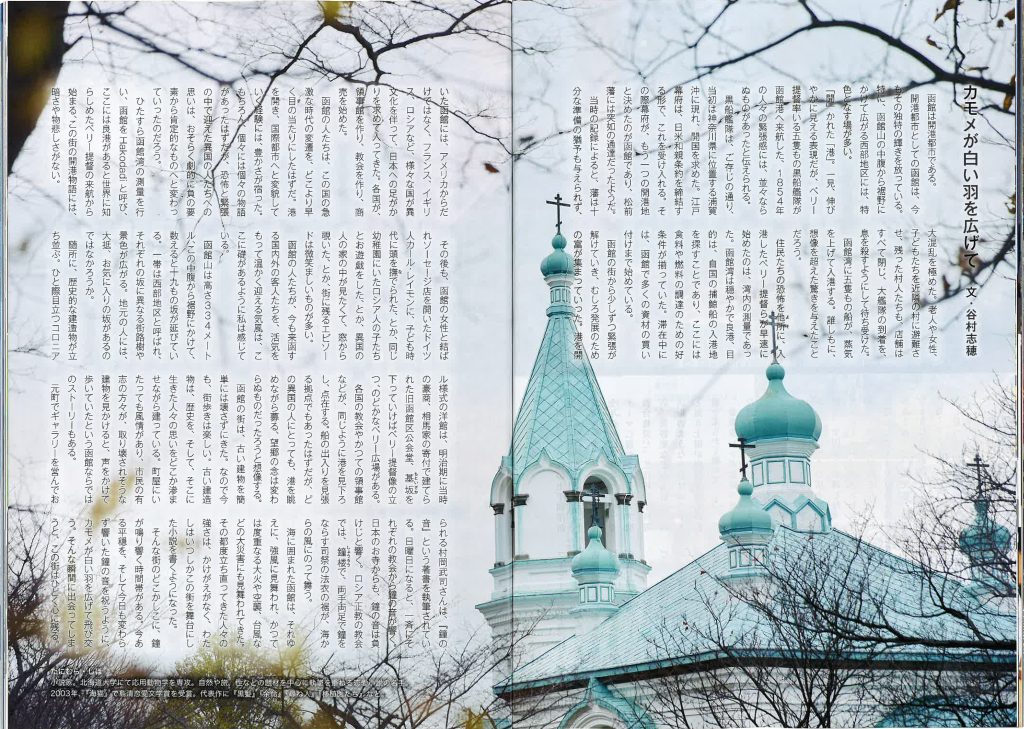 カモメが白い羽を広げて　文・谷村志穂
函館は開港都市である。
開港都市としての函館は、今
もその独特の輝きを放っている。
特に、函館山の中腹から裾野に
かけて広がる西部地区には、特
色となす場が多い。
「開」かれた「港」。一見、伸び
やかに見える表現だが、ペリー
提督率いる五隻もの黒船艦隊が
函館港へ来航した、1854年
の人々の緊張感には、並々なら
ぬものがあったと伝えられる。
黒船艦隊は、ご存じの通り、
当初は神奈川県に位置する浦賀
沖に現れ、開国を求めた。江戸
幕府は、日米和親条約を締結す
る形で、これを受け入れる。そ
の際幕府が、もう一つの開港地
と決めたのが函館であり、松前
藩には突如の通達だったようだ。
当時の記録によると、藩は十
分な準備の猶予も与えられず、
大混乱を極めた。老人や女性、
子どもたちを近隣の村に避難さ
せ、残った村人たちも、店舗は
すべて閉じ、大艦隊の到着を、
息を殺すようにして待ち受けた。
函館湾に五隻もの船が、蒸気
を上げて入港する。誰しもに、
想像を超えた驚きを与えたこと
だろう。
住民たちの恐怖を他所に、入
港したペリー提督らが早速に
始めたのは、湾内の測量であっ
た。函館湾は穏やかで良港、目
的は、自国の捕鯨船の入港地
を探すことにあり、ここには
食料や燃料の調達のための好
条件が揃っていた。滞在中に
は、函館で多くの資材の買い
付けまで始めている。
函館の街から少しずつ緊張が
解けていき、むしろ発展のため
の富が集まっていった。港を開
いた函館には、アメリカからだ
けではなく、フランス、イギリ
ス、ロシアなど、様々な国が異
文化を伴って、日本への足がか
りを求めて入ってきた。各国が、
領事館を作り、教会を作り、商
売を始めた。
函館の人たちは、この国の急
激な時代の変遷を、どこより早
く目の当たりにしたはずだ。港
を開き、国際都市へと変貌して
いく経験には、豊かさが宿った。
もちろん、個々には個々の物語
があったはずだが、恐怖と緊張
の中で迎えた異国の人たちへの
思いは、おそらく劇的に負の要
素から肯定的なものへと変わっ
ていったのだろう。
ひたすら函館湾の測量を行
い、函館をHakodadiと呼び、
ここには良港があると世界に知
らしめたペリー提督の来航から
始まる、この街の開港物語には、
暗さや物悲しさがない。
その後も、函館の女性と結ば
れソーセージ店を開いたドイツ
人カール・レイモンに、子ども時
代に頭を撫でられた、とか、同じ
幼稚園にいたロシア人の子たち
とお遊戯をした、とか、異国の
人の家の中が見たくて、窓から
覗いた、とか、街に残るエピソー
ドは微笑ましいものが多い。
函館の人たちが、今も来函す
る国内外の客人たちを、活気を
もって温かく迎える気風は、こ
こに礎があるように私は感じて
いる。
函館山は高さ334メート
ル。この中腹から裾野にかけて、
数えると十九もの坂が延びてい
る。一帯は西部地区と呼ばれ、
それぞれの坂に異なる街路樹や
景色が広がる。地元の人には、
大抵、お気に入りの坂があるの
ではなかろうか。
随所に、歴史的な建造物が立
ち並ぶ。ひと際目立つコロニア
ル様式の洋館は、明治期に当時
の豪商、相馬家の寄付で建てら
れた旧函館区公会堂、基坂を
下っていけばペリー提督像の立
つ、のどかなペリー広場がある。
各国の教会やかつての領事館
などが、同じように港を見下ろ
し、点在する。船の出入りを見張
る拠点でもあったはずだが、ど
の異国の人にとっても、港を眺
めながら募る、望郷の念は変わ
らぬものだったろうと想像する。
函館の街は、古い建物を簡
単には壊さずにきた。なので今
も、街歩きは楽しい。古い建造
物は、歴史を、そして、そこに
生きた人々の思いをどこか滲ま
せながら建っている。町屋にい
たっても風情があり、市民の有
志の方々が、取り壊されそうな
建物を見かけると、声をかけて
歩いていたという函館ならでは
のストーリーもある。
元町でギャラリーを営んでお
られる村岡武司さんは、『鐘の
音』という著書を執筆されてい
る。日曜日になると、一斉にそ
れぞれの教会から鐘の音が響く。
日本のお寺からも、鐘の音は負
けじと響く。ロシア正教の教会
では、鐘楼で、両手両足で鐘を
ならす司祭の法衣の裾が、海か
らの風にのって舞う。
海に囲まれた函館は、それゆ
えに、強風に見舞われ、かつて
は度重なる大火や空襲、台風な
どの大災害にも見舞われてきた。
その都度立ち直ってきた人々の
強さは、かけがえがなく、わた
しはいつしかこの街を舞台にし
た小説を書くようになった。
そんな街のどこかしこに、鐘
が鳴り響く時間帯がある。今あ
る平穏を、そして今日も変わら
ず響いた鐘の音を祝うように、
カモメが白い羽を広げて飛び交
う。そんな瞬間に出会ってしま
うと、この街はひどく心に残る。
たにむら・しほ
小説家。北海道大学にて応用動物学を専攻。自然や旅、性などの題材を中心に執筆を重ねる
2003年、『海猫』で島清恋愛文学賞を受賞。代表作に『黒髪』『余命』『尋ね人』『移植医たち』など。